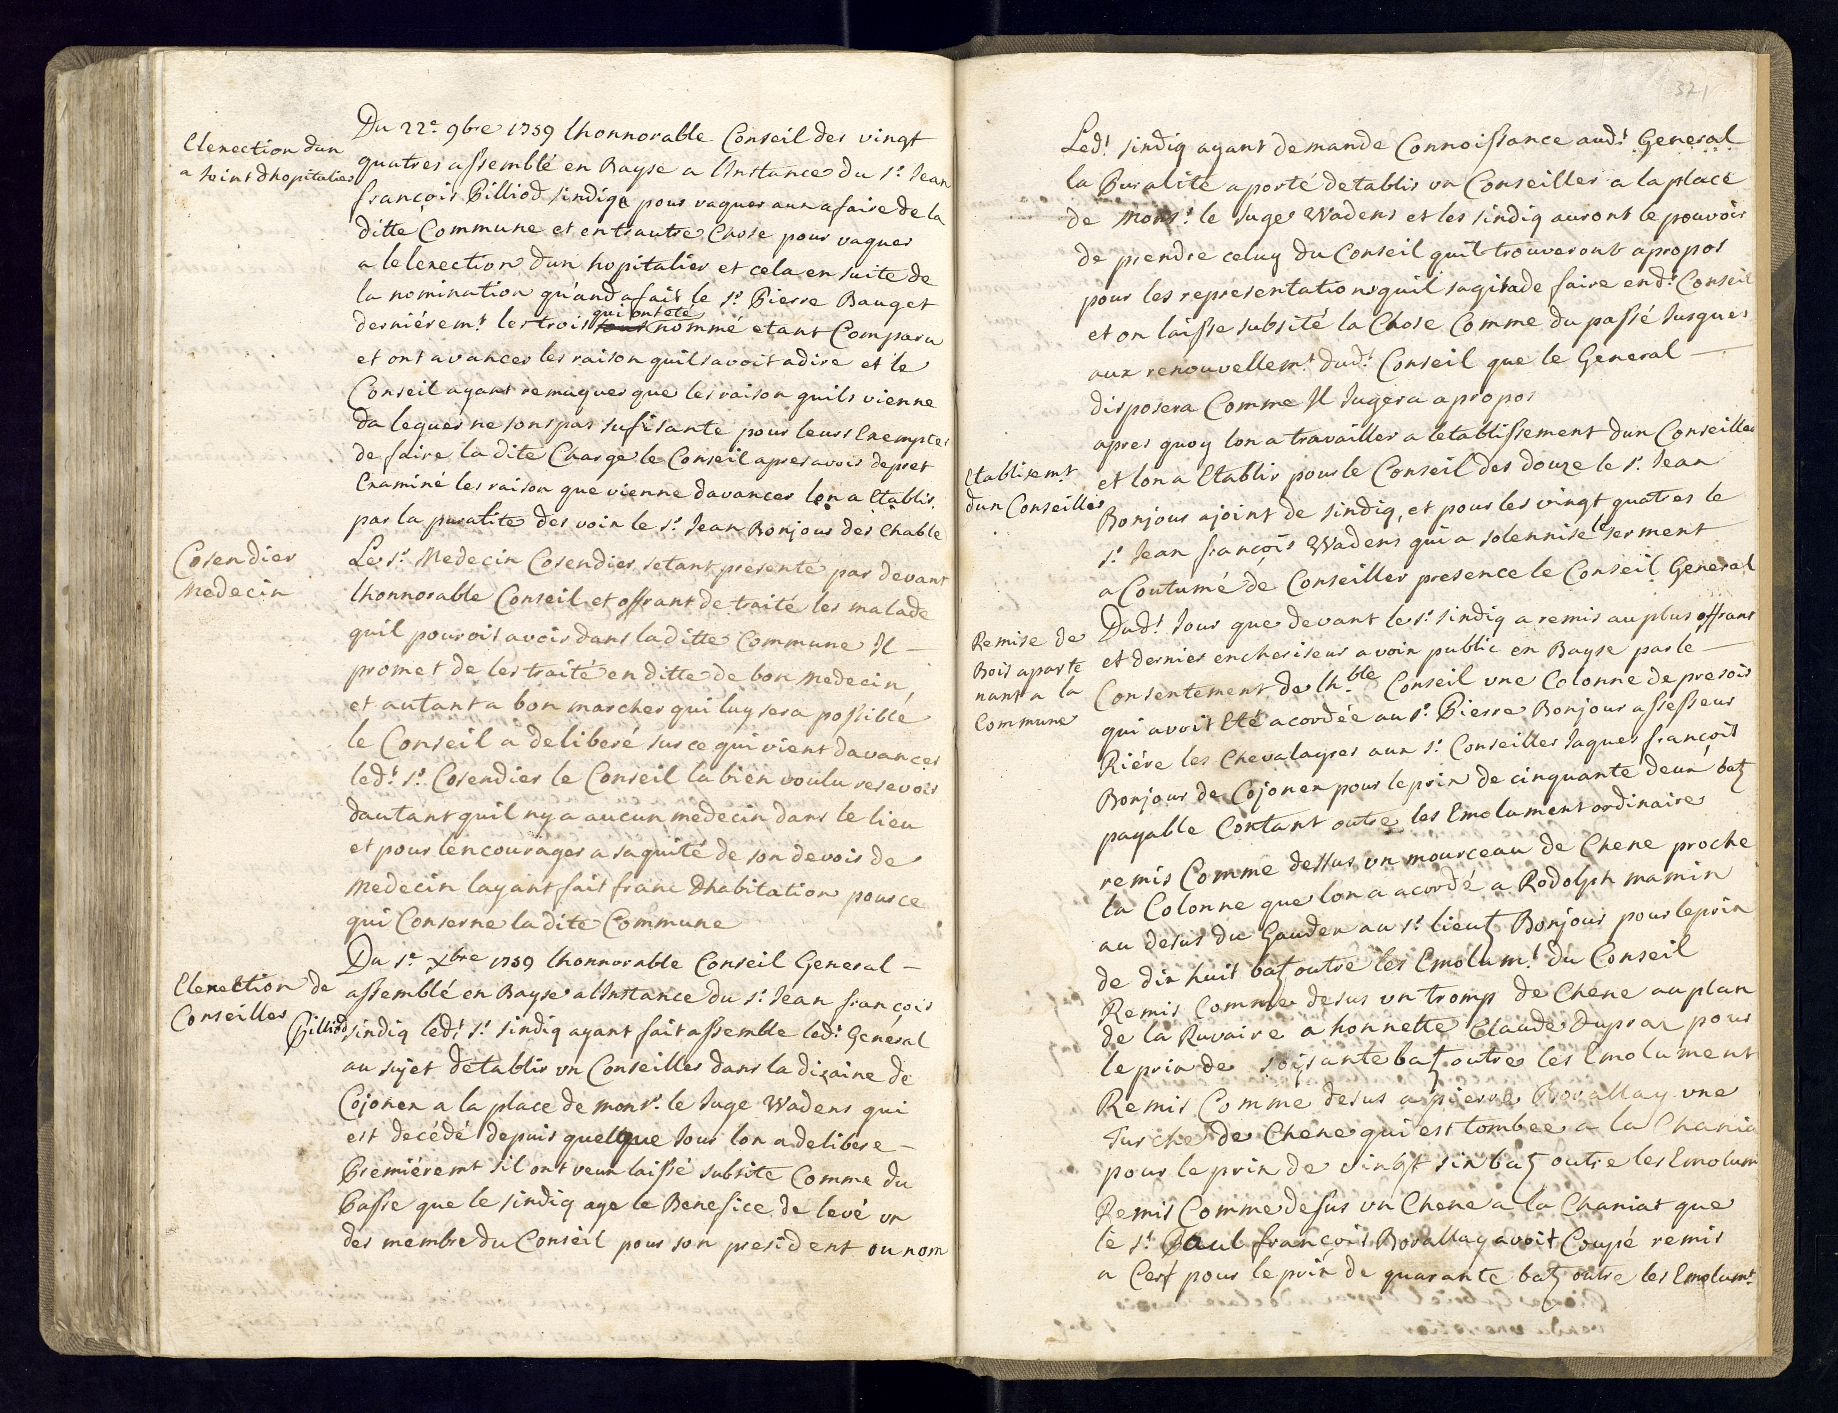 Elenection dun
a Joint dhopitalier
Du 22.e 9bre 1759 lhonnorable Conseil des vingt
quatres assemblé en Bayse a linstance du Sr. Jean
françois Pilliod sindiqe pour vaquer aux afaire de la
ditte Commune et entrautre Chose pour vaquer
a lelenection dun hopitalier et cela en suite de
la nomination qu'and a fait le Sr. Pierre Bauget
derniérem.t les trois qui ont eté nommé etant Comparu
et ont avancer les raison quil savoit a dire et le
Conseil ayant remaquer que les raison quils vienne
da leguer ne sont pas sufisante pour leurs Exempter
de faire la dite Charge le Conseil apres avoir depret
Examiné les raison que vienne davancer lon a Etablir
par la puralite des voix le Sr. Jean Bonjour des Chable
Cosendier
Medecin
Le Sr. Medecin Cosendier setant presenté par devant
lhonnorable Conseil et offrant de traité les malade
quil pouroit avoir dans la ditte Commune Il —
promet de les traité en ditte de bon Medecin,
et autant a bon marcher qui luy sera possible
le Conseil a deliberé sur ce qui vient davancer
led.t Sr. Cosendier le Conseil la bien voulu resevoir
dautant quil ny a aucun medecin dans le lieu
et pour lencourager a saquité de son devoir de
Medecin layant fait franc dhabitation pour ce
qui Conserne la dite Commune
Elenection de
Conseiller
Du 1.e Xbre 1759 lhonnorable Conseil General —
assemblé en Bayse a linstance du Sr. Jean françois
Pilliod sindiq led.t Sr. sindiq ayant fait assemble led.t General
au sujet detablir un Conseiller dans la dizaine de
Cojonex a la place de monsr. le Juge Wadens qui
est decédé depuis quelque Jour lon a delibere —
Premiéremt sil ont veux laissé subsite Comme du
Passe que le sindiq aye le Benefice de levé un
des membre du Conseil pour son president ou nom
321
Led.t sindiq ayant demande Connoissance aud.t General
la Puralite a porté detablir un Conseiller a la place
de Mons.r le Juge Wadens et les sindiq auront le pouvoir
de prendre celuy du Conseil quil trouveront apropos
pour les representation quil sagira de faire end.t Conseil
et on laisse subsité la Chose Comme du passé Jusques
aux renouvellem.t dud.t Conseil que le General —
disposera Comme Il Jugera apropos
Etablisemt
dun Conseiller
apres quoy lon a travailler a letablissement dun Conseiller
et lon a Etablir pour le Conseil des douze le Sr. Jean
Bonjour ajoint de sindiq, et pour les vingt quatres le
Sr. Jean françois Wadens qui a solennise le serment
a Coutumé de Conseiller presence le Conseil General
Remise de
Bois aparte
nant a la
Commune
Dud.t Jour que devant le Sr. sindiq a remis au plus offrant
et dernier encheriseur a voix public en Bayse par le —
Consentement de lh.ble Conseil une Colonne de presoir
qui avoit Eté acordée au Sr. Pierre Bonjour assesseur
Riére les Chevalayres aux Sr. Conseiller Jaques françois
Bonjour de Cojonex pour le prix de cinquante deux batz
payable Contant outre les Emolument ordinaire
remis Comme dessus un mourceau de Chene proche
la Colonne que lon a acordé a Rodolph mamin
au desus du Gauden au Sr. lieutz Bonjour pour le prix
de dix huit batz outre les Emolum.t du Conseil
Remis Comme desus un tromp de Chéne au plan
de la Ruvaire a honnette Claude Dupraz pour
le prix de soisante batz outre les Emolument
Remis Comme desus a pierre Bovallay une
furche de Chene qui est tombee a la Chania
pour le prix de vingt sinx batz outre les Emolum
Remis Comme desus un Chene a la Chaniat que
le Sr. Paul françois Bovallay avoit Coupé remis
a Cest pour le prix de quarante batz outre les Emolumt.